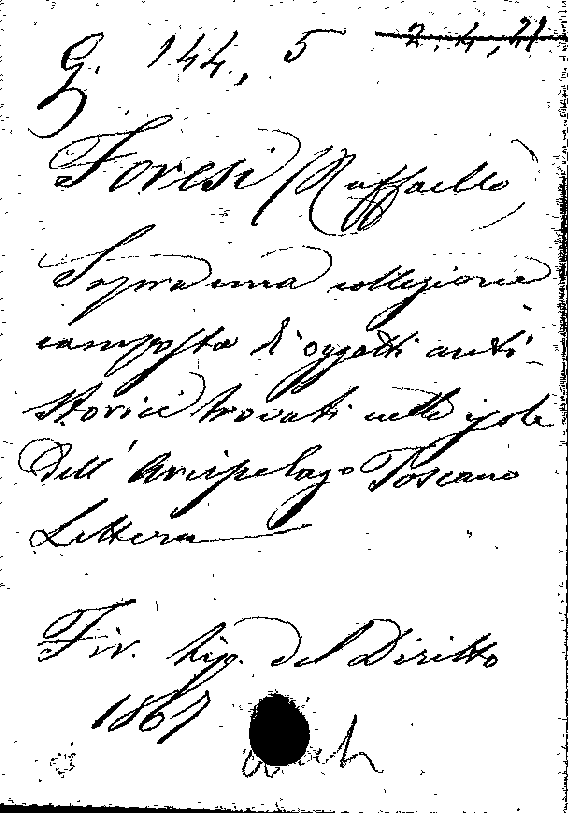 G. 144, 5 2. 4, 21
Foresi (Raffaello)
Sopra una collezione
composta d'oggetti anti-
storici trovati nelle isole
dell'Arcipelago Toscano
Lettera
Fir. tip. del Diritto
1867